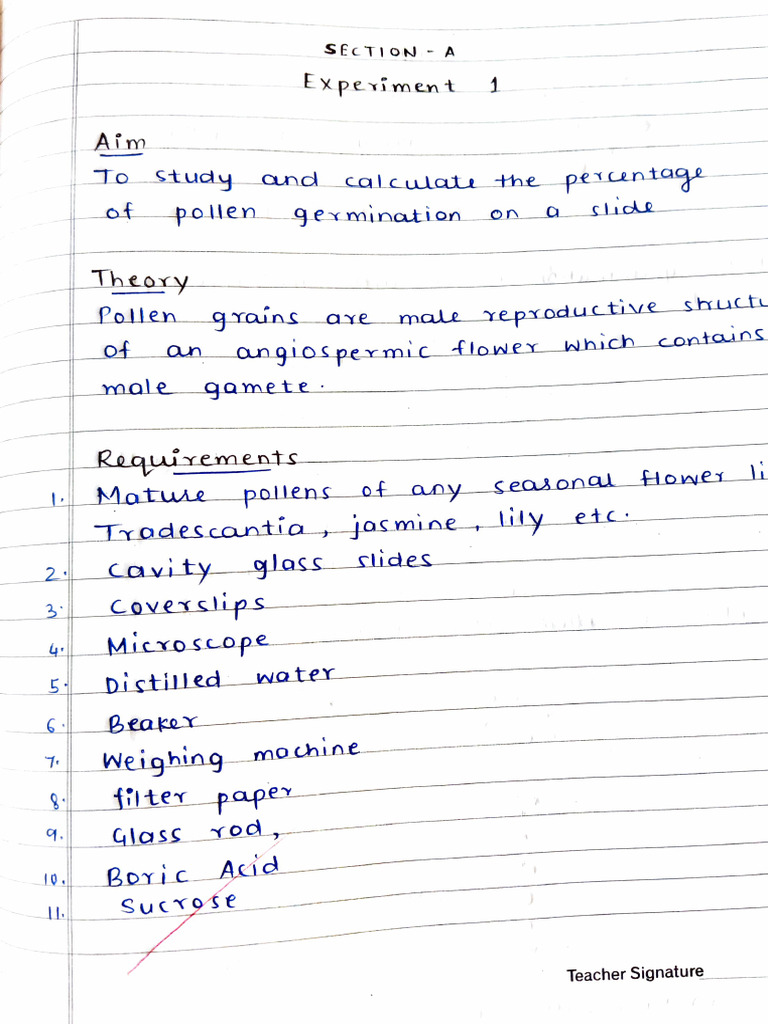 SECTION - A
Experiment 1
Aim
To study and calculate the percentage
of pollen germination on a slide
Theory
Pollen grains are male reproductive structu
of an angiospermic flower which contains
male gamete.
Requirements
1. Mature pollens of any seasonal flower li
Tradescantia, jasmine, lily etc.
2. Cavity glass slides
3. Coverslips
4. Microscope
5. Distilled water
6. Beaker
7. Weighing machine
8. filter paper
9. Glass rod,
10. Boric Acid
11. Sucrose
Teacher Signature